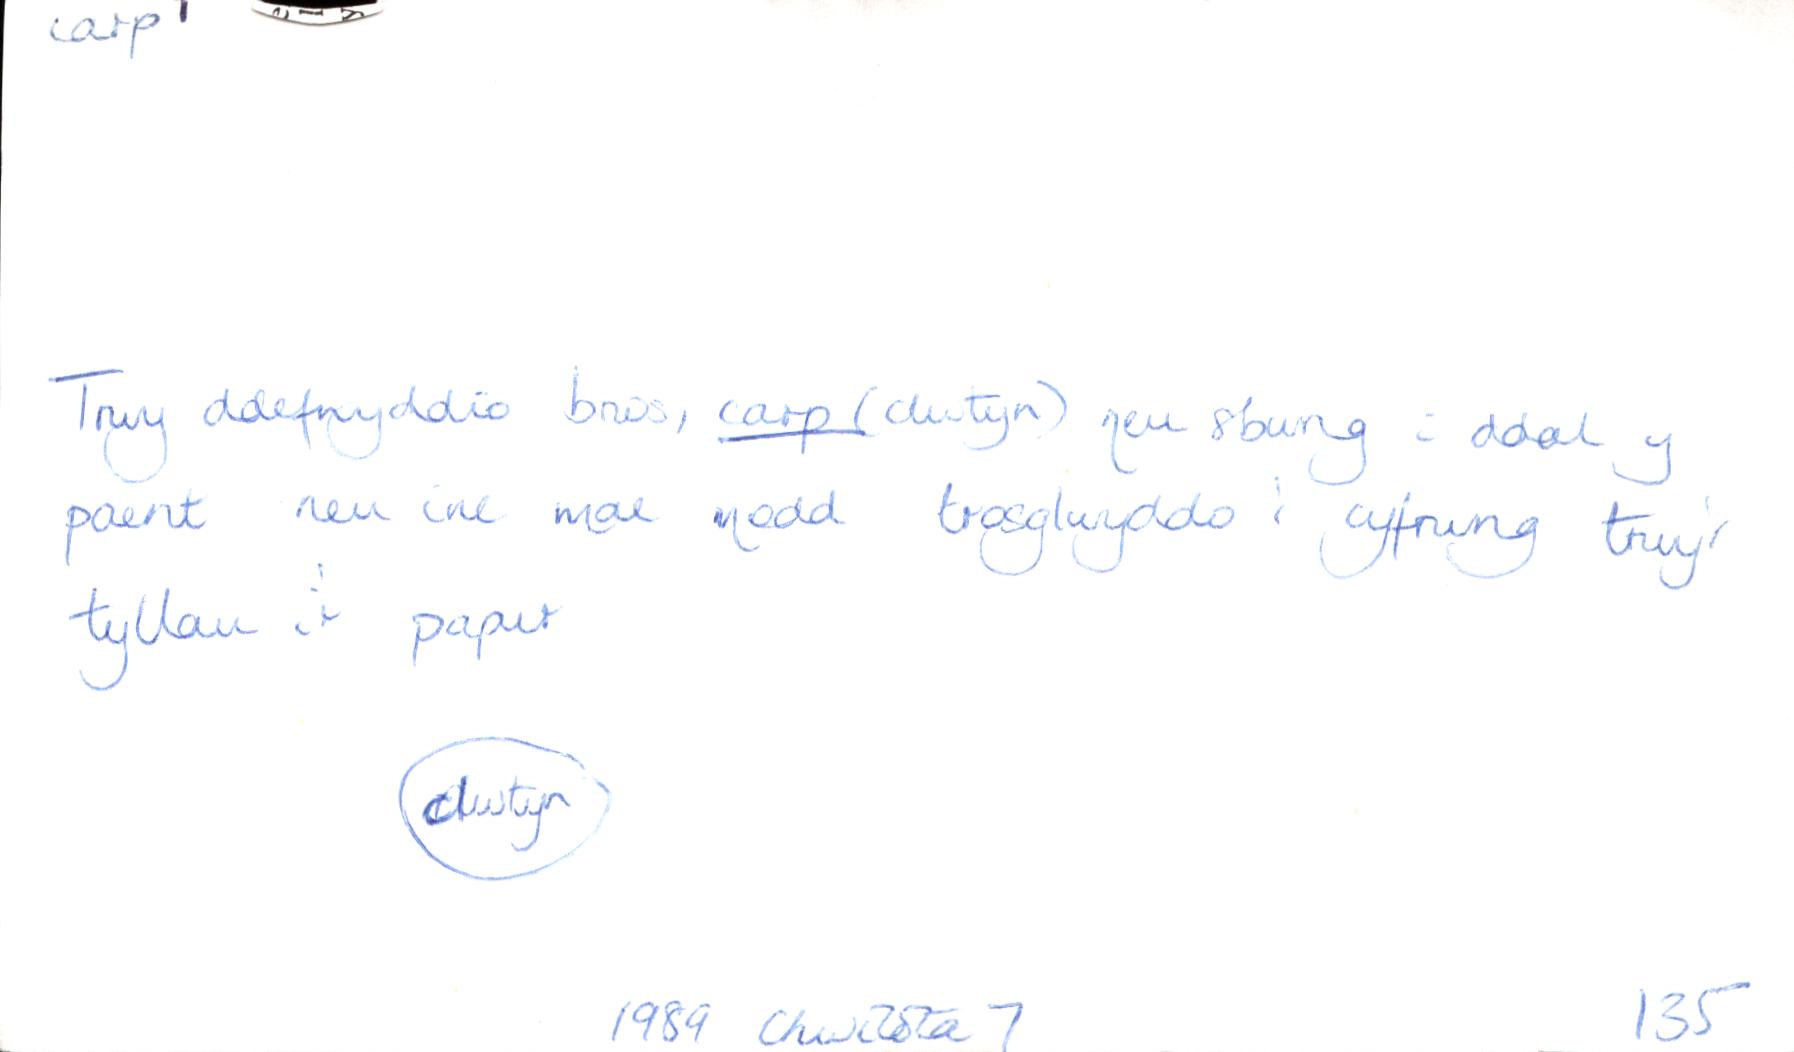 carp¹
Trwy ddefnyddio bros, carp (clwtyn) neu sbwng i ddal y
paent neu inc mae modd trosglwyddo i cyfrwng trwy'r
tyllau i'r papur
clwtyn
1989 Chwilota 7 135